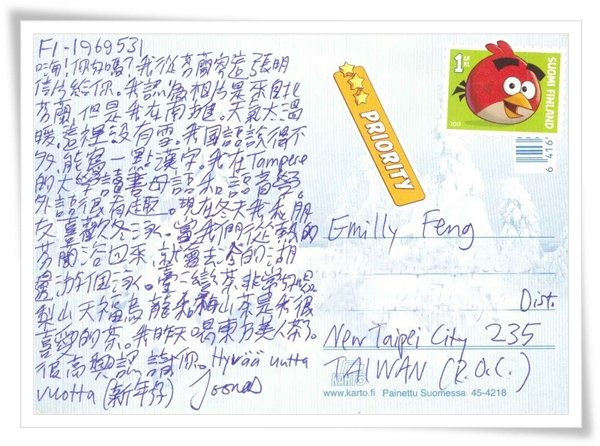 FI-1969531
嗨!你好嗎?我從芬蘭寫這張明
信片給你。我認為相片是來自北
芬蘭,但是我在南。天氣太溫
暖,這裡沒有雪。我國語說得不
多,能寫一點漢字。我在Tampere
的大學讀書母語和語音學
外語很有趣。現在冬天我和朋
友喜歡冬泳。當我們從熱的
芬蘭浴回來,就要去冷的湖
邊游個泳。臺灣茶非常好喝
梨山天福烏龍和梅山茶是我很
喜歡的茶。我昨天喝東方美人茶了。
很高興認識你。Hyvää uutta
vuotta (新年好) Joonas
PRIORITY
1 LK KL
2013
SUOMI FINLAND
6 416
Emilly Feng
Dist.
New Taipei City 235
TAIWAN (R.O.C.)
KARTO
www.karto.fi Painettu Suomessa 45-4218